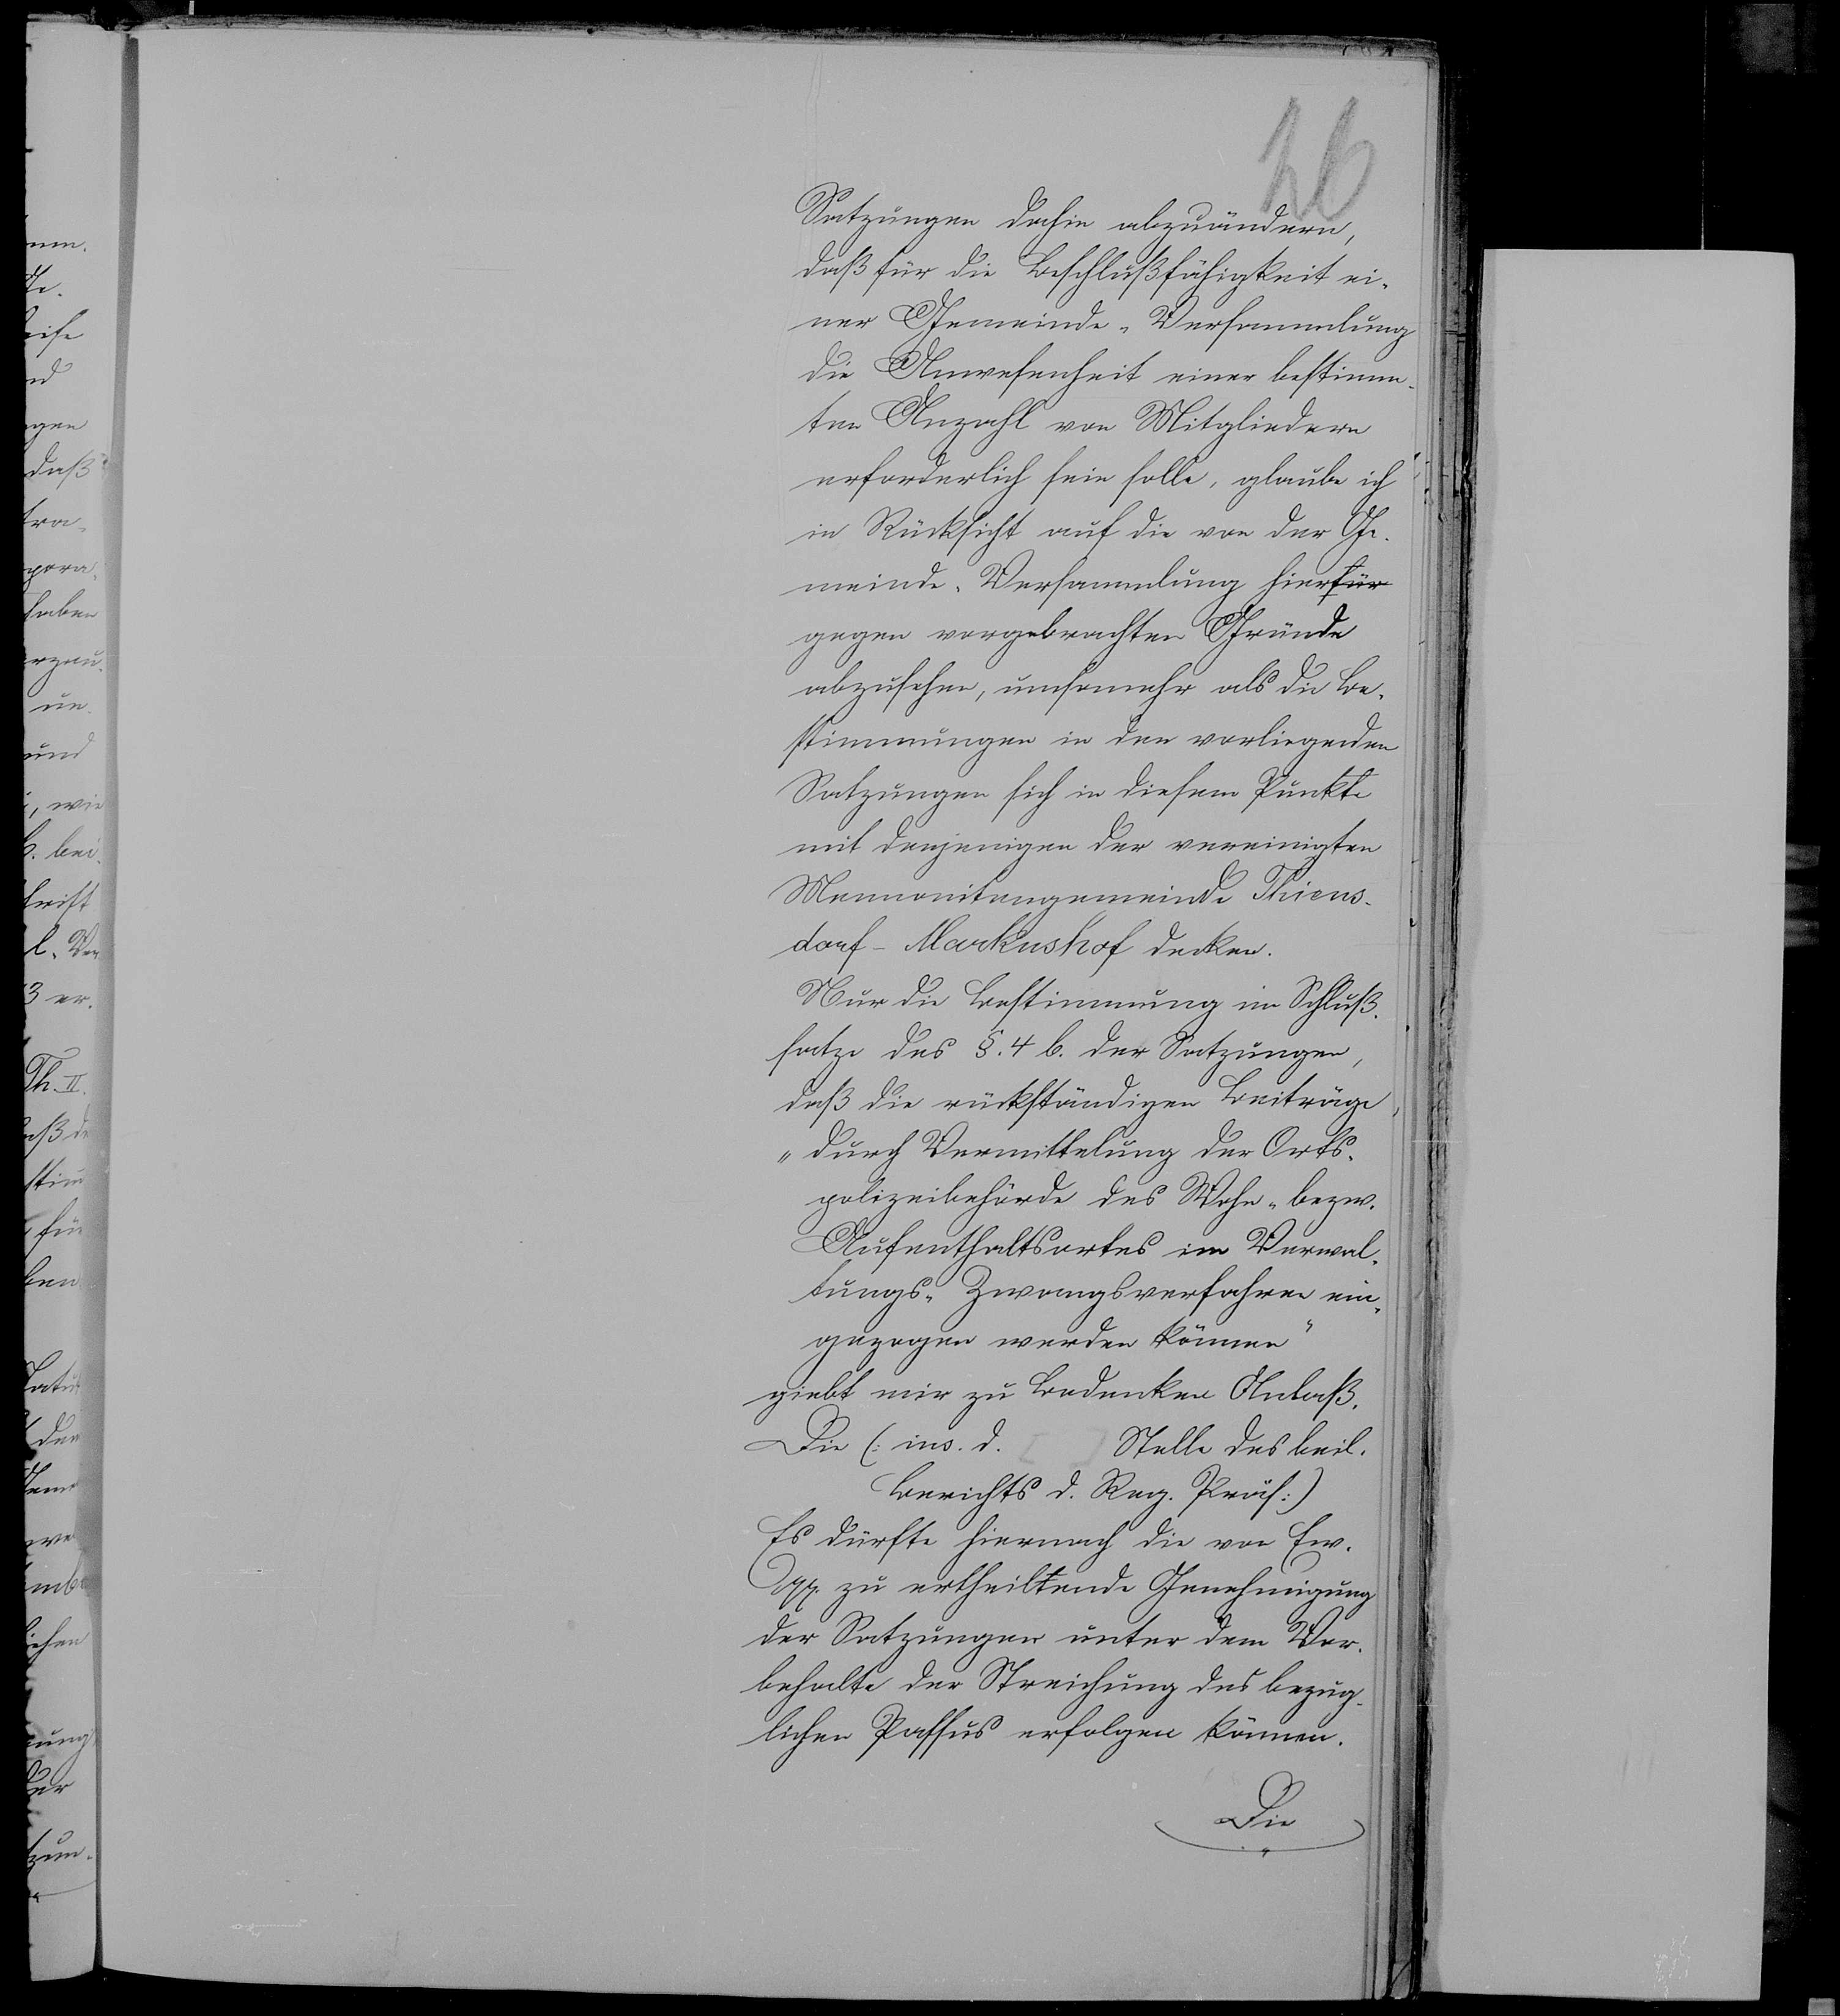 26
Satzungen dahin abzuändern,
daß für die Beschlußfähigkeit ei-
ner Gemeinde-Versammlung
die Anwesenheit einer bestimm-
ten Anzahl von Mitgliedern
erforderlich sein solle, glaube ich
in Rücksicht auf die von der Ge-
meinde-Versammlung hierfür
gegen vorgebrachten Gründe
abzusehen, umsomehr als die Be-
stimmungen in den vorliegenden
Satzungen sich in diesem Punkte
mit denjenigen der vereinigten
Mennonitengemeinde Thiens-
dorf-Markushof decken.
Nur die Bestimmung im Schluß-
satze des §. 4 b. der Satzungen,
daß die rückständigen Beiträge,
"durch Vermittelung der Orts-
polizeibehörde des Wohn- bezw.
Aufenthaltsortes im Verwal-
tungs-Zwangsverfahren ein-
gezogen werden können"
giebt mir zu Bedenken Anlaß.
Die (: ins. d. [ ] Stelle des beil.
Berichts d. Reg. Präs:)
Es dürfte hiernach die von Ew.
pp. zu ertheilende Genehmigung
der Satzungen unter dem Vor-
behalte der Streichung des bezüg-
lichen Passus erfolgen können.
Die